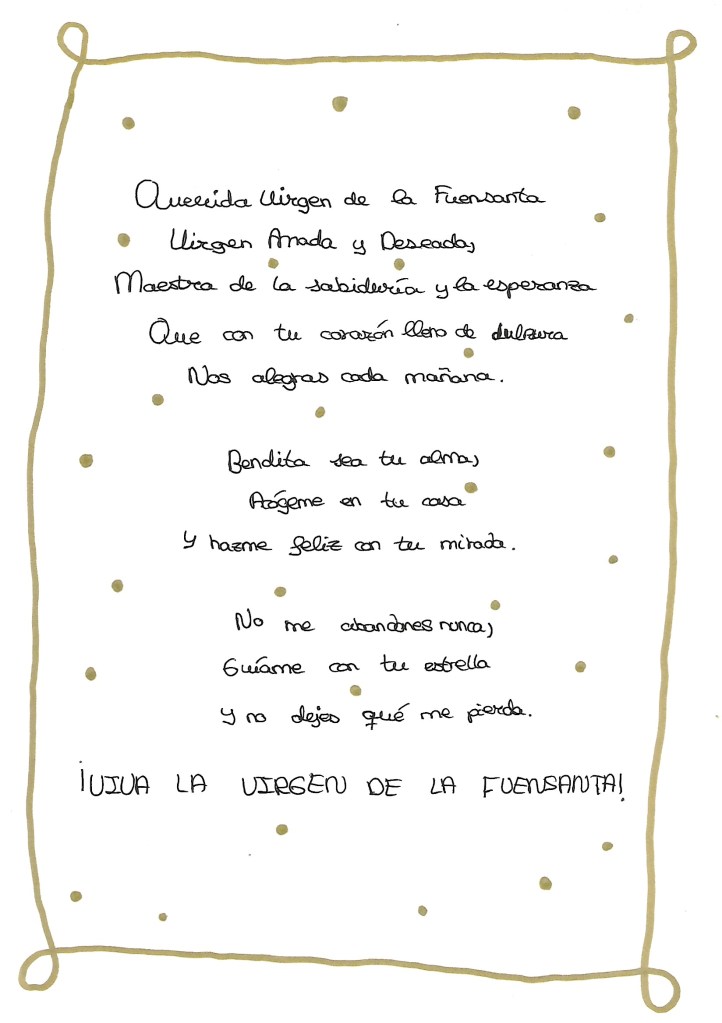 Querida Virgen de la Fuensanta
Virgen Amada y Deseada,
Maestra de la sabiduría y la esperanza
Que con tu corazón lleno de dulzura
Nos alegras cada mañana.
Bendita sea tu alma,
Acógeme en tu casa
Y hazme feliz con tu mirada.
No me abandones nunca,
Guíame con tu estrella
Y no dejes qué me pierda.
¡VIVA LA VIRGEN DE LA FUENSANTA!